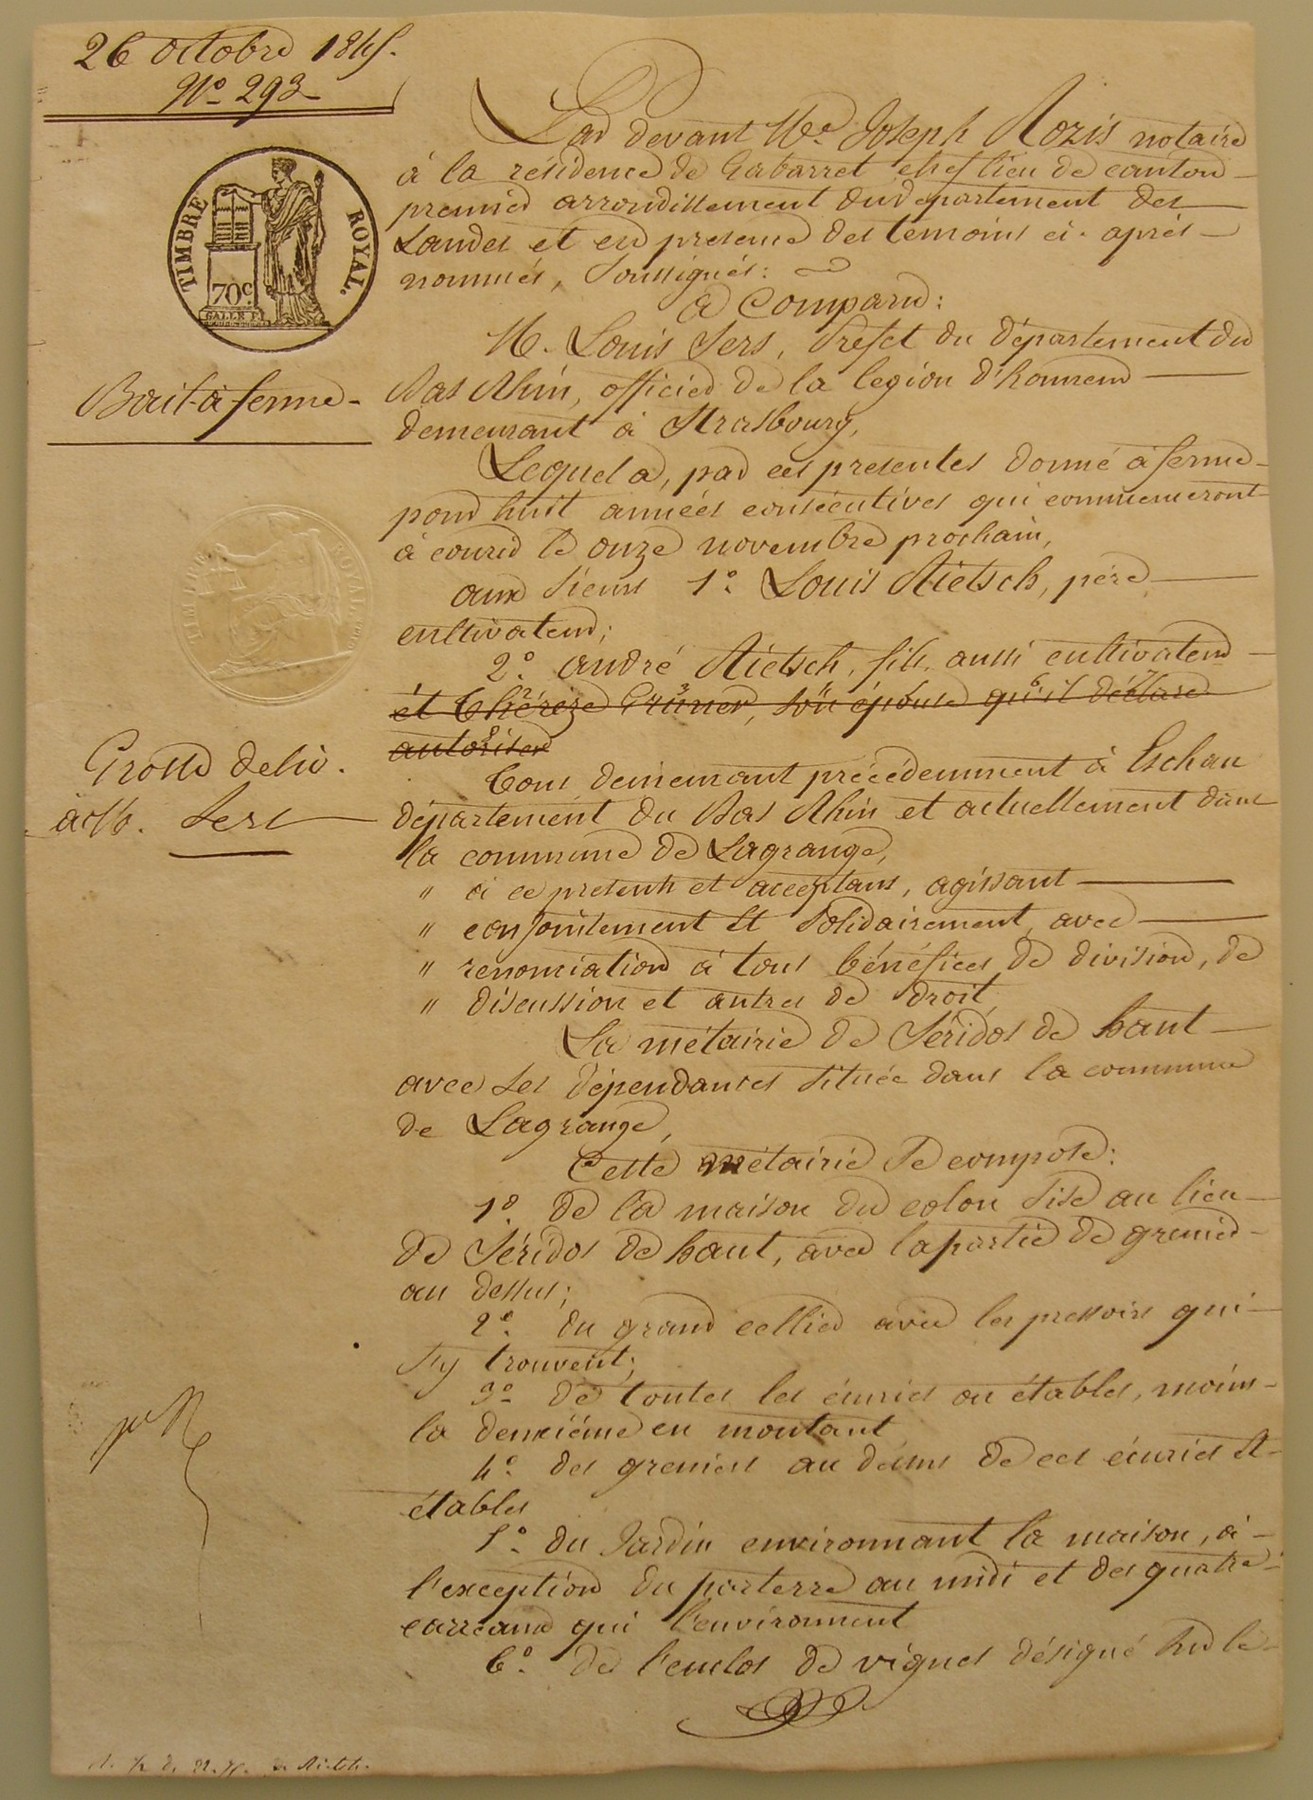 26 octobre 1845.
N° 293
TIMBRE ROYAL.
70c.
Bail à ferme
TIMBRE ROYAL
Grosse deliv.
à M. Sers
Par devant Me. Joseph Rozis notaire
à la résidence de Gabarret chef lieu de canton
premier arrondissement du département des
Landes et en presence des temoins ci-après
nommés, soussignés:
a Comparu:
M. Louis Sers, Préfet du Département du
Bas Rhin, officier de la legion d'honneur
demeurant à Strasbourg,
Lequel a, par ces presentes donné à ferme
pour huit années consécutives qui commenceront
à courir le onze novembre prochain,
aux sieurs 1°. Louis Rietsch, père
cultivateur;
2°. andré Rietsch, fils, aussi cultivateur
et Thérèze Prüner, son épouse qu'il déclare
autoriser
Tous demeurant précédemment à Eschau
département du Bas Rhin et actuellement dans
la commune de Lagrange,
" à ce presents et acceptans, agissant
" conjointement et solidairement, avec
" renonciation à tous bénéfices de division, de
" discussion et autres de droit,
La métairie de Séridos de haut
avec ses dépendances située dans la commune
de Lagrange,
Cette métairie se compose:
1°. de la maison du colon sise au lieu
de Séridos de haut, avec la partie de grenier
au dessus;
2°. du grand cellier avec les pressoirs qui
s'y trouvent;
3°. de toutes les écuries ou étables, moins
la deuxième en montant
4°. des greniers au dessus de ces écuries et
étables
5°. du Jardin environnant la maison, à
l'exception du parterre au midi et des quatre
carreaux qui l'environnent
6°. de l'enclos de vignes désigné sur le